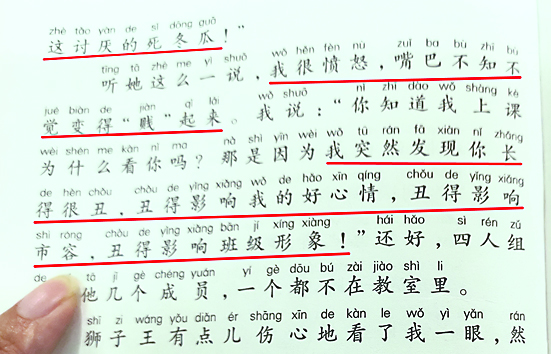 zhè tǎo yàn de sǐ dōng guā
这讨厌的死冬瓜！”
tīng tā zhè me yì shuō wǒ hěn fèn nù zuǐ ba bù zhī bù
听她这么一说，我很愤怒，嘴巴不知不
jué biàn de jiàn qǐ lái wǒ shuō nǐ zhī dào wǒ shàng kè
觉变得“贱”起来。我说：“你知道我上课
wèi shén me kàn nǐ ma nà shì yīn wèi wǒ tū rán fā xiàn nǐ zhǎng
为什么看你吗？那是因为我突然发现你长
de hěn chǒu chǒu de yǐng xiǎng wǒ de hǎo xīn qíng chǒu de yǐng xiǎng
得很丑，丑得影响我的好心情，丑得影响
shì róng chǒu de yǐng xiǎng bān jí xíng xiàng hái hǎo sì rén zǔ
市容，丑得影响班级形象！”还好，四人组
de tā jǐ gè chéng yuán yí gè dōu bú zài jiào shì li
他几个成员，一个都不在教室里。
shī zi wáng yǒu diǎn ér shāng xīn de kàn le wǒ yì yǎn rán
狮子王有点儿伤心地看了我一眼，然